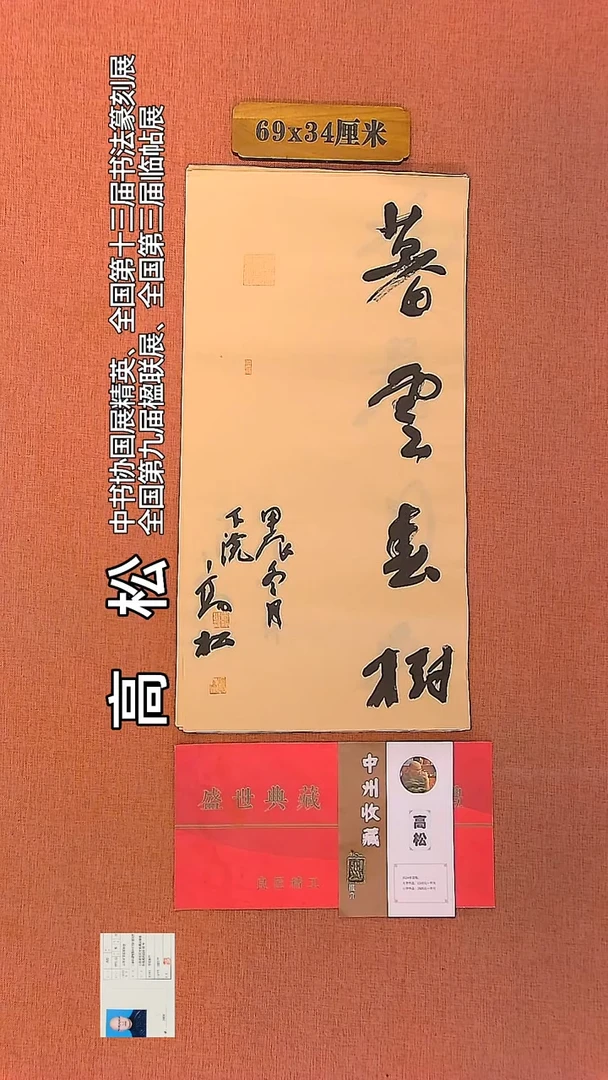 69x34厘米
中书协国展精英、全国第十三届书法篆刻展
全国第九届楹联展、全国第三届临帖展
高 松
暮雲春樹
甲辰冬月
下浣
高松
盛世典藏
中州收藏
高松